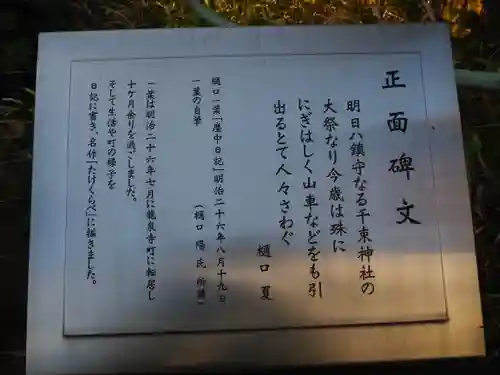 正面碑文
明日ハ鎮守なる千束神社の
大祭なり今歳は殊に
にぎはしく山車などをも引
出るとて人々さわぐ
樋口 夏
樋口一葉「塵中日記」明治二十六年八月十九日
一葉の自筆
(樋口陽氏所蔵)
一葉は明治二十六年七月に龍泉寺町に転居し
十ケ月余りを過ごしました。
そして生活や町の様子を
日記に書き、名作「たけくらべ」に描きました。